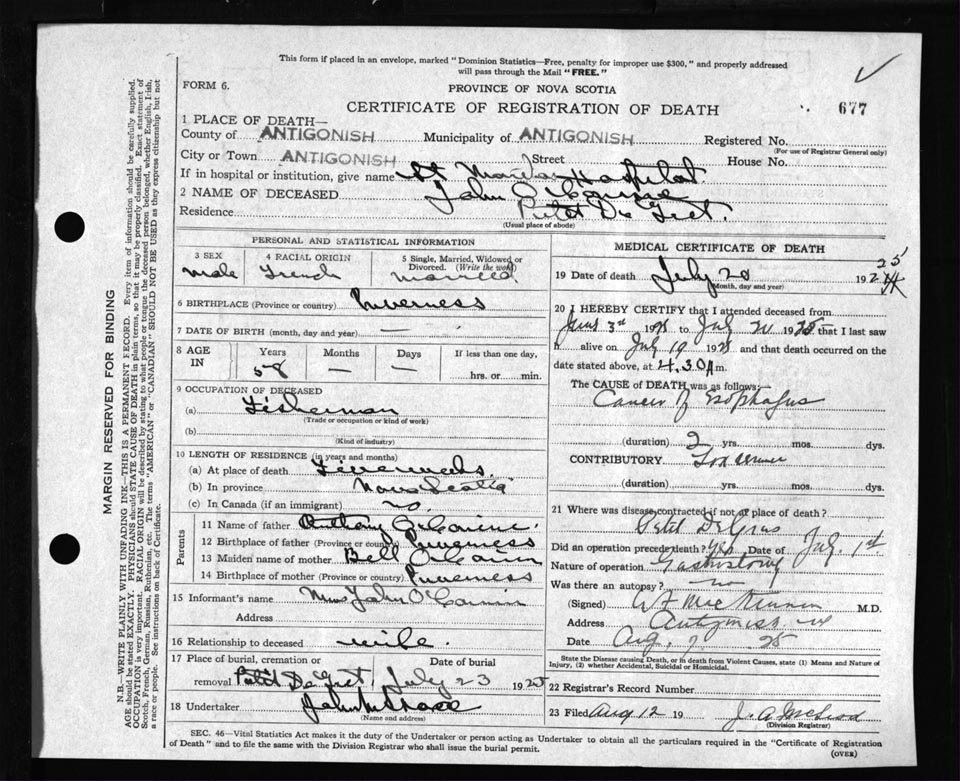 This form if placed in an envelope, marked "Dominion Statistics—Free, penalty for improper use $300," and properly addressed
will pass through the Mail "FREE."
FORM 6.
PROVINCE OF NOVA SCOTIA
CERTIFICATE OF REGISTRATION OF DEATH
677
1 PLACE OF DEATH—
County of ANTIGONISH Municipality of ANTIGONISH Registered No.
(For use of Registrar General only)
City or Town ANTIGONISH Street House No.
If in hospital or institution, give name St Hospital
2 NAME OF DECEASED John
Residence De
(Usual place of abode)
PERSONAL AND STATISTICAL INFORMATION
3 SEX 4 RACIAL ORIGIN 5 Single, Married, Widowed or Divorced. (Write the word)
Male French Married
6 BIRTHPLACE (Province or country) Inverness
7 DATE OF BIRTH (month, day and year) —
8 AGE IN Years Months Days If less than one day,
58 — — hrs. or min.
9 OCCUPATION OF DECEASED
(a) Fisherman
(Trade or occupation or kind of work)
(b)
(Kind of industry)
10 LENGTH OF RESIDENCE (in years and months)
(a) At place of death weeks
(b) In province Nova Scotia
(c) In Canada (if an immigrant)
Parents
11 Name of father Anthony
12 Birthplace of father (Province or country) Inverness
13 Maiden name of mother Bell
14 Birthplace of mother (Province or country) Inverness
15 Informant's name Mrs John
Address
16 Relationship to deceased wife.
17 Place of burial, cremation or removal Date of burial
July 23 1925
18 Undertaker John
(Name and address)
MEDICAL CERTIFICATE OF DEATH
19 Date of death July 20 1924 25
(Month, day and year)
20 I HEREBY CERTIFY that I attended deceased from
3rd 1925 to July 20 1925 that I last saw
h alive on July 19 1925 and that death occurred on
date stated above, at 4.30 A m.
The CAUSE of DEATH was as follows:
Cancer of Esophagus
(duration) 2 yrs. mos. dys.
CONTRIBUTORY
(duration) yrs. mos. dys.
21 Where was disease contracted if not at place of death?
Petit De Gras
Did an operation precede death? Yes Date of July 1st
Nature of operation Gastrostomy
Was there an autopsy? no
(Signed) M.D.
Address
Date Aug. 25
State the Disease causing Death, or in death from Violent Causes, state (1) Means and Nature of
Injury, (2) whether Accidental, Suicidal or Homicidal.
22 Registrar's Record Number
23 Filed Aug 12 19 J. A. McLeod
(Division Registrar)
SEC. 46—Vital Statistics Act makes it the duty of the Undertaker or person acting as Undertaker to obtain all the particulars required in the "Certificate of Registration
of Death" and to file the same with the Division Registrar who shall issue the burial permit.
(OVER)
MARGIN RESERVED FOR BINDING
N.B.—WRITE PLAINLY WITH UNFADING INK—THIS IS A PERMANENT RECORD. Every item of information should be carefully supplied.
AGE should be stated EXACTLY. PHYSICIANS should STATE CAUSE OF DEATH in plain terms, so that it may be properly classified. Exact statement of
OCCUPATION is very important. RACIAL ORIGIN will be described by stating to what people or tongue the deceased person belonged, whether English, Irish,
Scotch, French, German, Russian, Ruthenian, etc. The terms "AMERICAN" or "CANADIAN" SHOULD NOT BE USED as they express citizenship but not
a race or people. See instructions on back of Certificate.